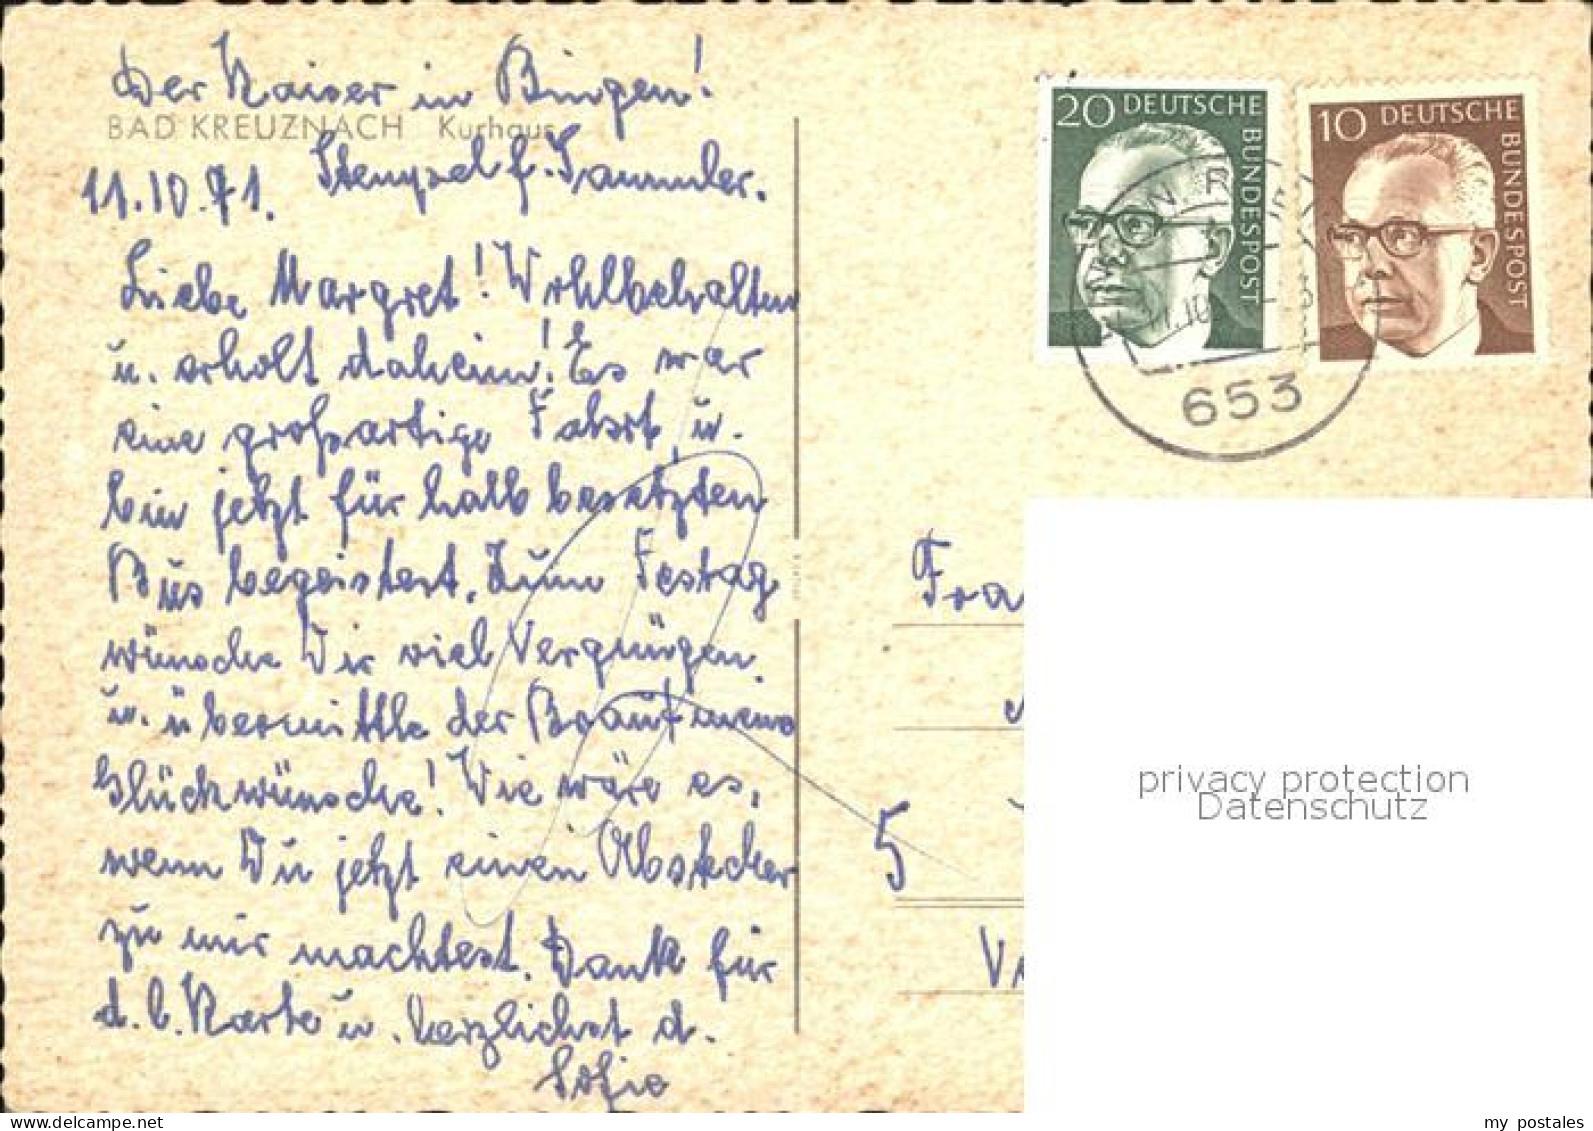 Der Kaiser in Bingen!
BAD KREUZNACH Kurhaus
Stempel f. Sammler.
11.10.71.
Liebe Margret! Wohlbehalten
u. erholt daheim! Es war
eine großartige Fahrt u.
bin jetzt für halb besetzten
Bus begeistert. Zum Festtag
wünsche Dir viel Vergnügen
u. übermittle der Braut meine
Glückwünsche! Wie wäre es,
wenn Du jetzt einen Abstecher
zu mir machtest. Dank für
d. l. Karte u. herzlichst d.
Sofie
20 DEUTSCHE BUNDESPOST
10 DEUTSCHE BUNDESPOST
653
Fra
5
privacy protection
Datenschutz
my postales